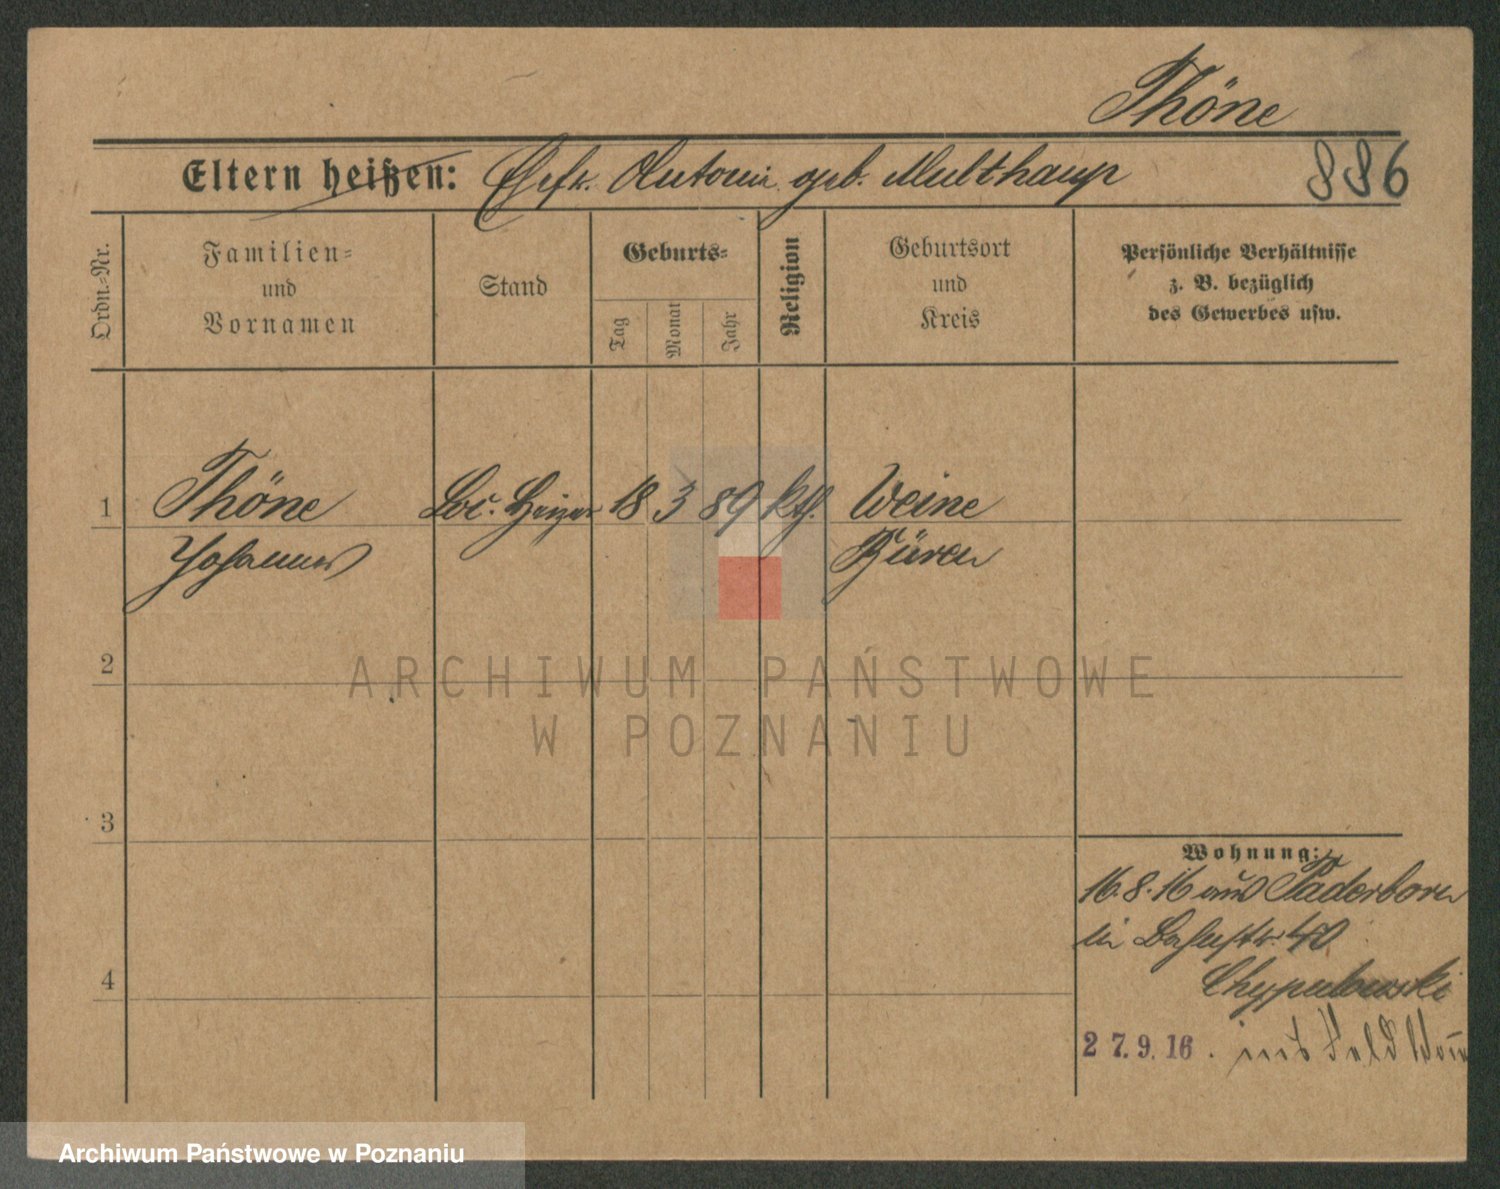 Thöne
Eltern heißen: Ehefr. Antonie geb. Multhaup
886
Ordn.=Nr.
Familien=
und
Vornamen
Stand
Geburts=
Tag
Monat
Jahr
Religion
Geburtsort
und
Kreis
Persönliche Verhältnisse
z. B. bezüglich
des Gewerbes usw.
1 Thöne Loc. Heizer 18 3 89 kth. Weine
Johannes Büren
2
ARCHIWUM PAŃSTWOWE
W POZNANIU
3
Wohnung:
16.8.16 aus Paderborn
in Bahnstr. 40
27.9.16. ins Feld
4
Archiwum Państwowe w Poznaniu